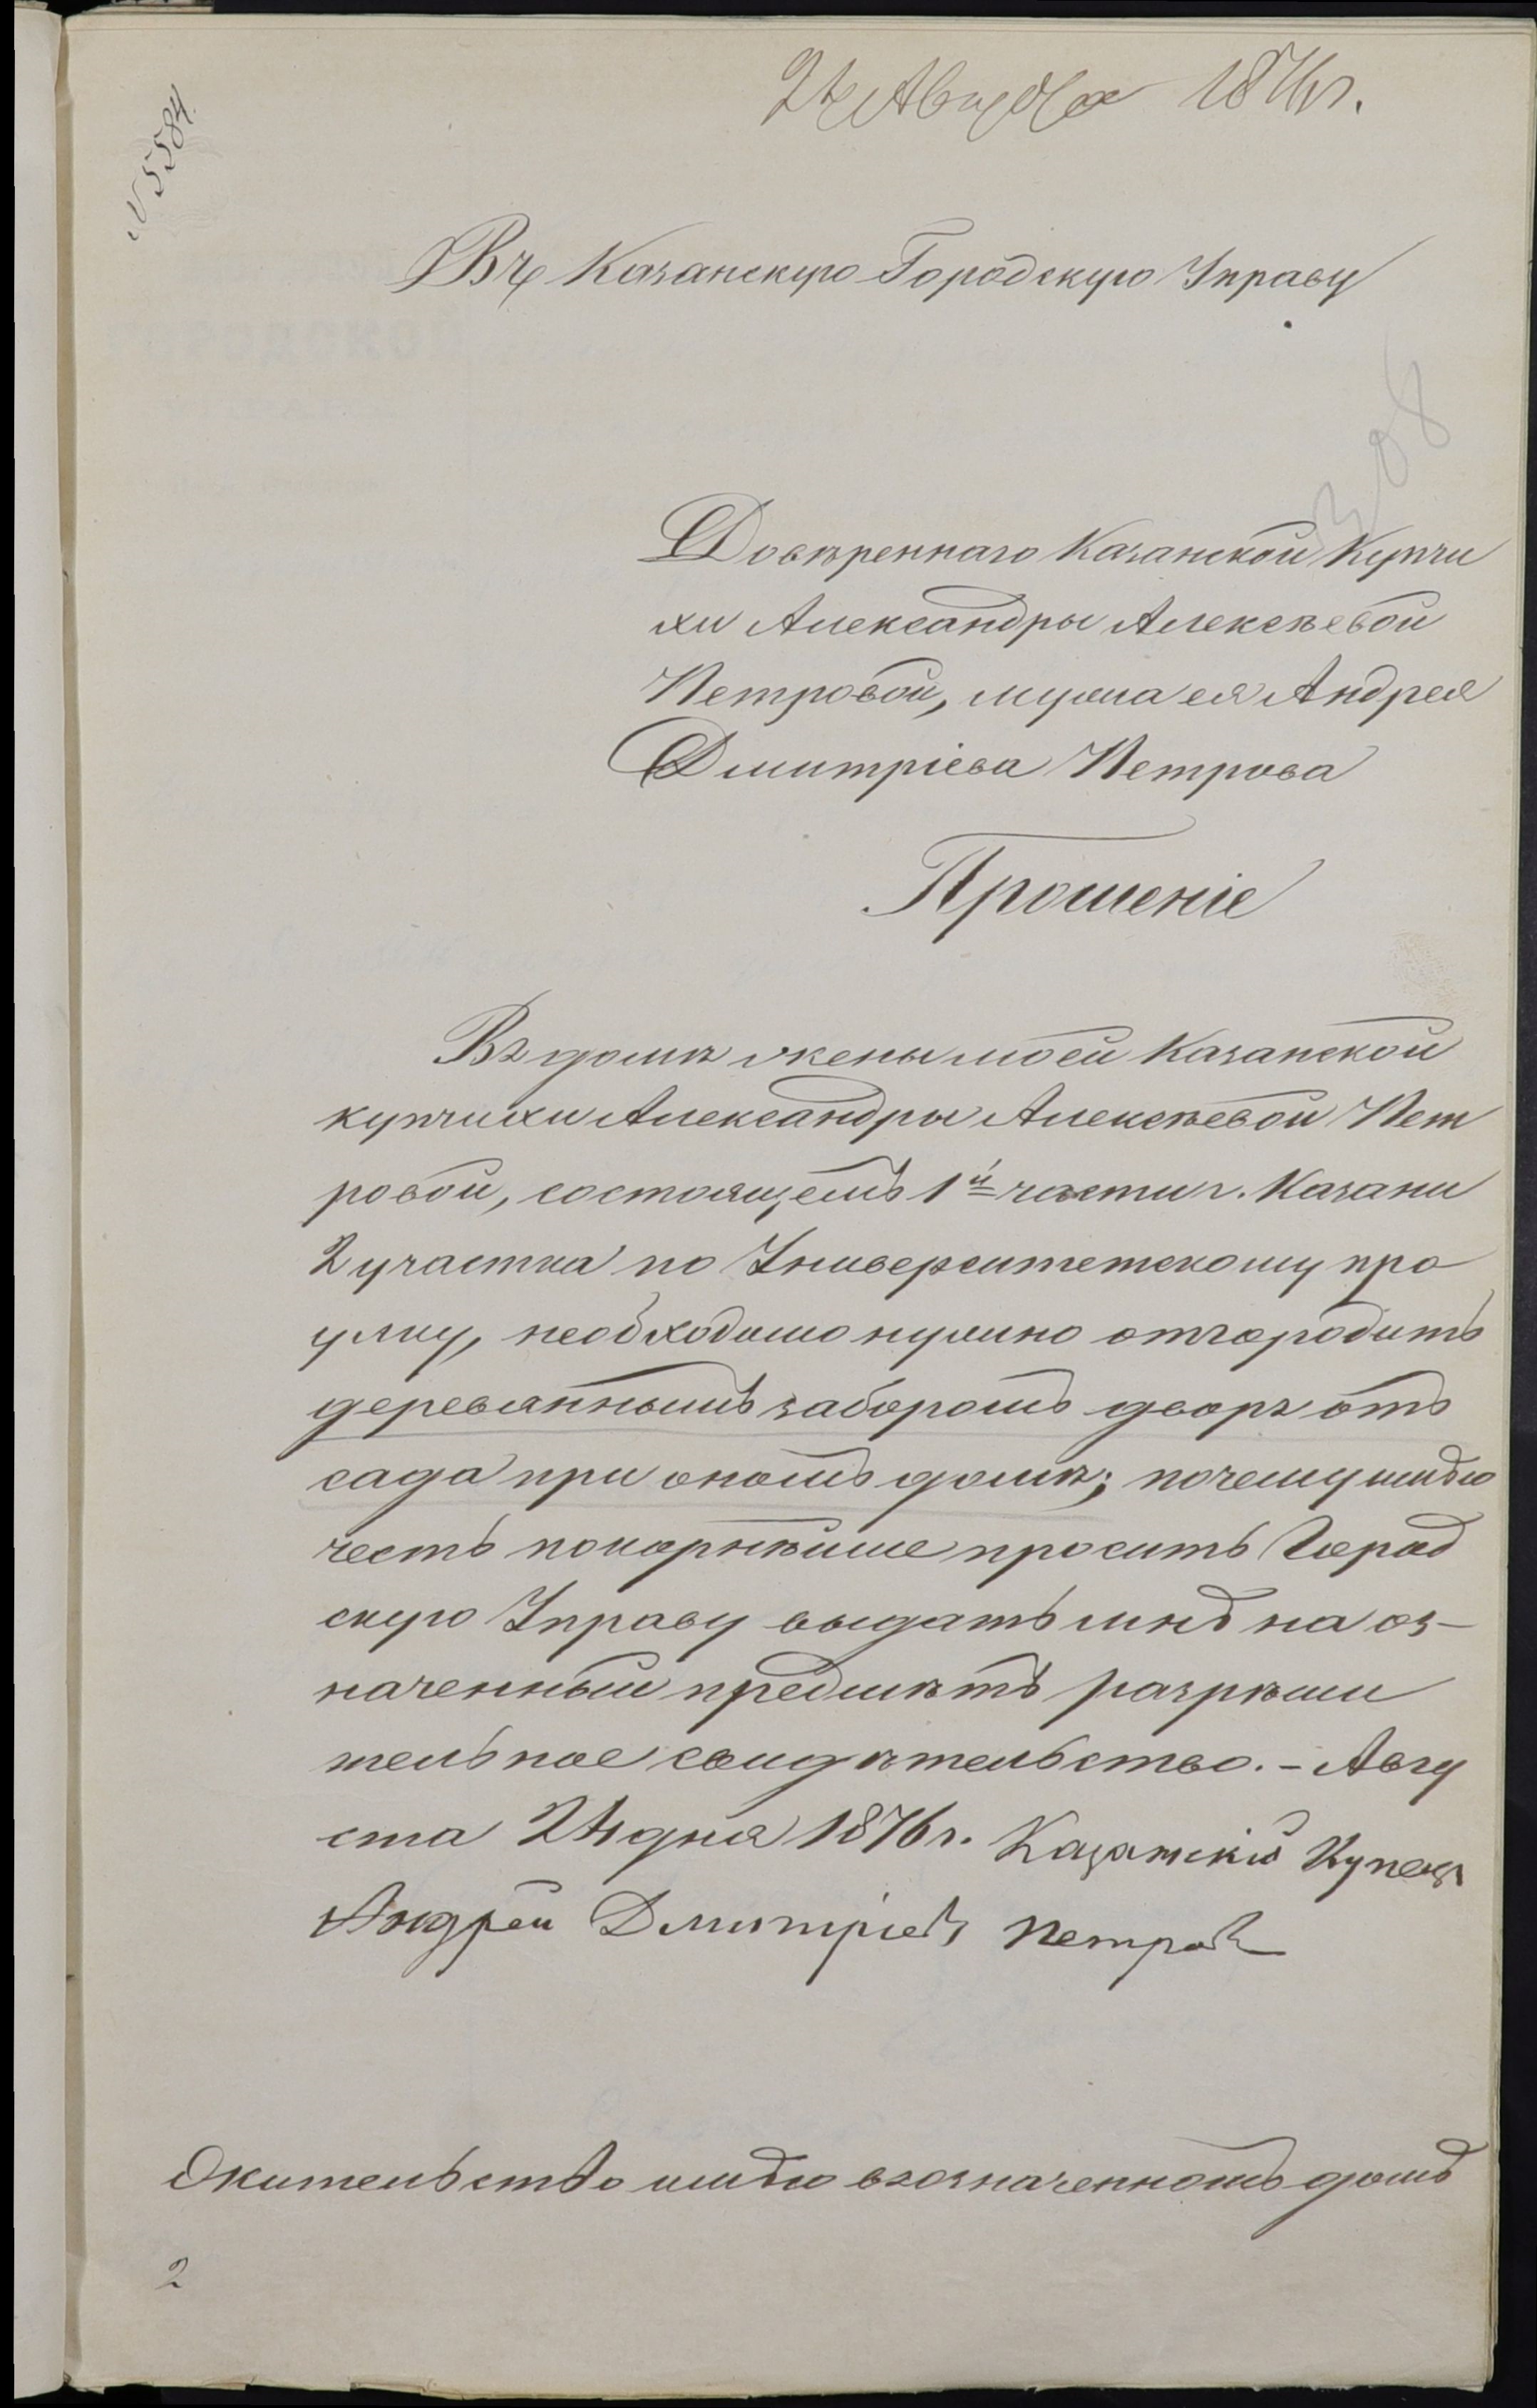 24 Августа 1876 г.
№ 5584.
Въ Казанскую Городскую Управу
308
Довѣреннаго Казанской Купчи
хи Александры Алексѣевой
Петровой, мужа ея Андрея
Дмитріева Петрова
Прошеніе
Въ домѣ жены моей Казанской
купчихи Александры Алексѣевой Пет
ровой, состоящемъ 1й части г. Казани
2 участка по Университетскому про
улку, необходимо нужно отгородить
деревяннымъ заборомъ дворъ отъ
сада при ономъ домѣ; почему имѣю
честь покорнѣйше просить Город
скую Управу выдать мнѣ на оз-
наченный предмѣтъ разрѣши
тельное свидѣтельство. - Авгу
ста 24 дня 1876 г. Казанскій Купецъ
Андрей Дмитріевъ Петровъ
Жительство имѣю въ означенномъ домѣ
2